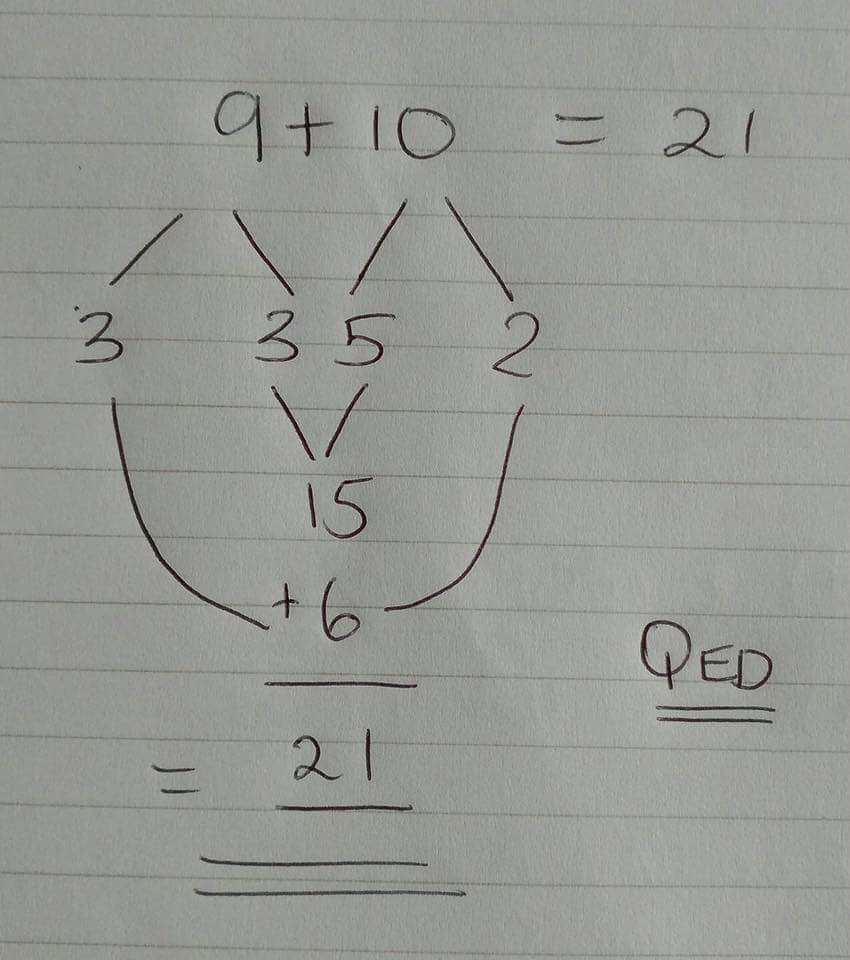 9 + 10 = 21
3 3 5 2
15
+ 6
QED
= 21